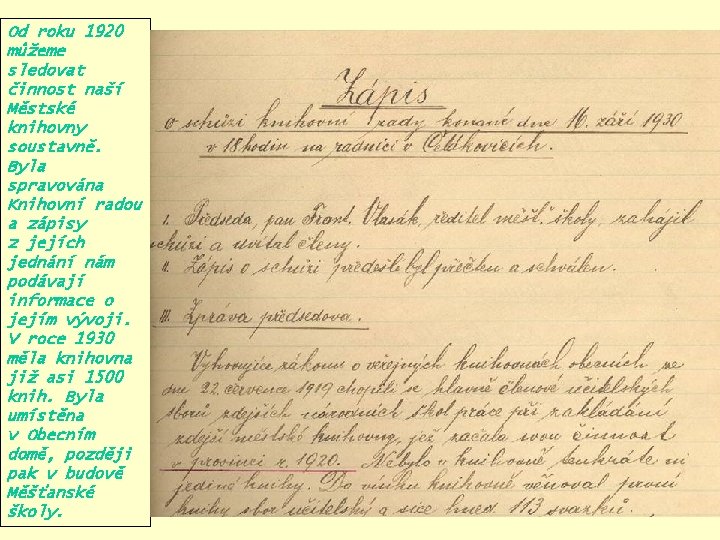 Od roku 1920
můžeme
sledovat
činnost naší
Městské
knihovny
soustavně.
Byla
spravována
Knihovní radou
a zápisy
z jejích
jednání nám
podávají
informace o
jejím vývoji.
V roce 1930
měla knihovna
již asi 1500
knih. Byla
umístěna
v Obecním
domě, později
pak v budově
Měšťanské
školy.
Zápis
o schůzi knihovní rady konané dne 16. září 1930
v 18 hodin na radnici v Čelákovicích.
I. Předseda, pan Frant. Vlasák, ředitel měšť. školy, zahájil
schůzi a uvítal členy.
II. Zápis o schůzi předešlé byl přečten a schválen.
III. Zpráva předsedova.
Vyhovujíce zákonu o veřejných knihovnách obecních ze
dne 22. července 1919 chopili se hlavně členové učitelských
sborů zdejších národních škol práce při zakládání
zdejší městské knihovny, jež začala svou činnost
v prosinci r. 1920. Nebylo v knihovně tenkráte ni
jediné knihy. Do vínku knihovně věnoval první
knihy sbor učitelský a sice hned 113 svazků.